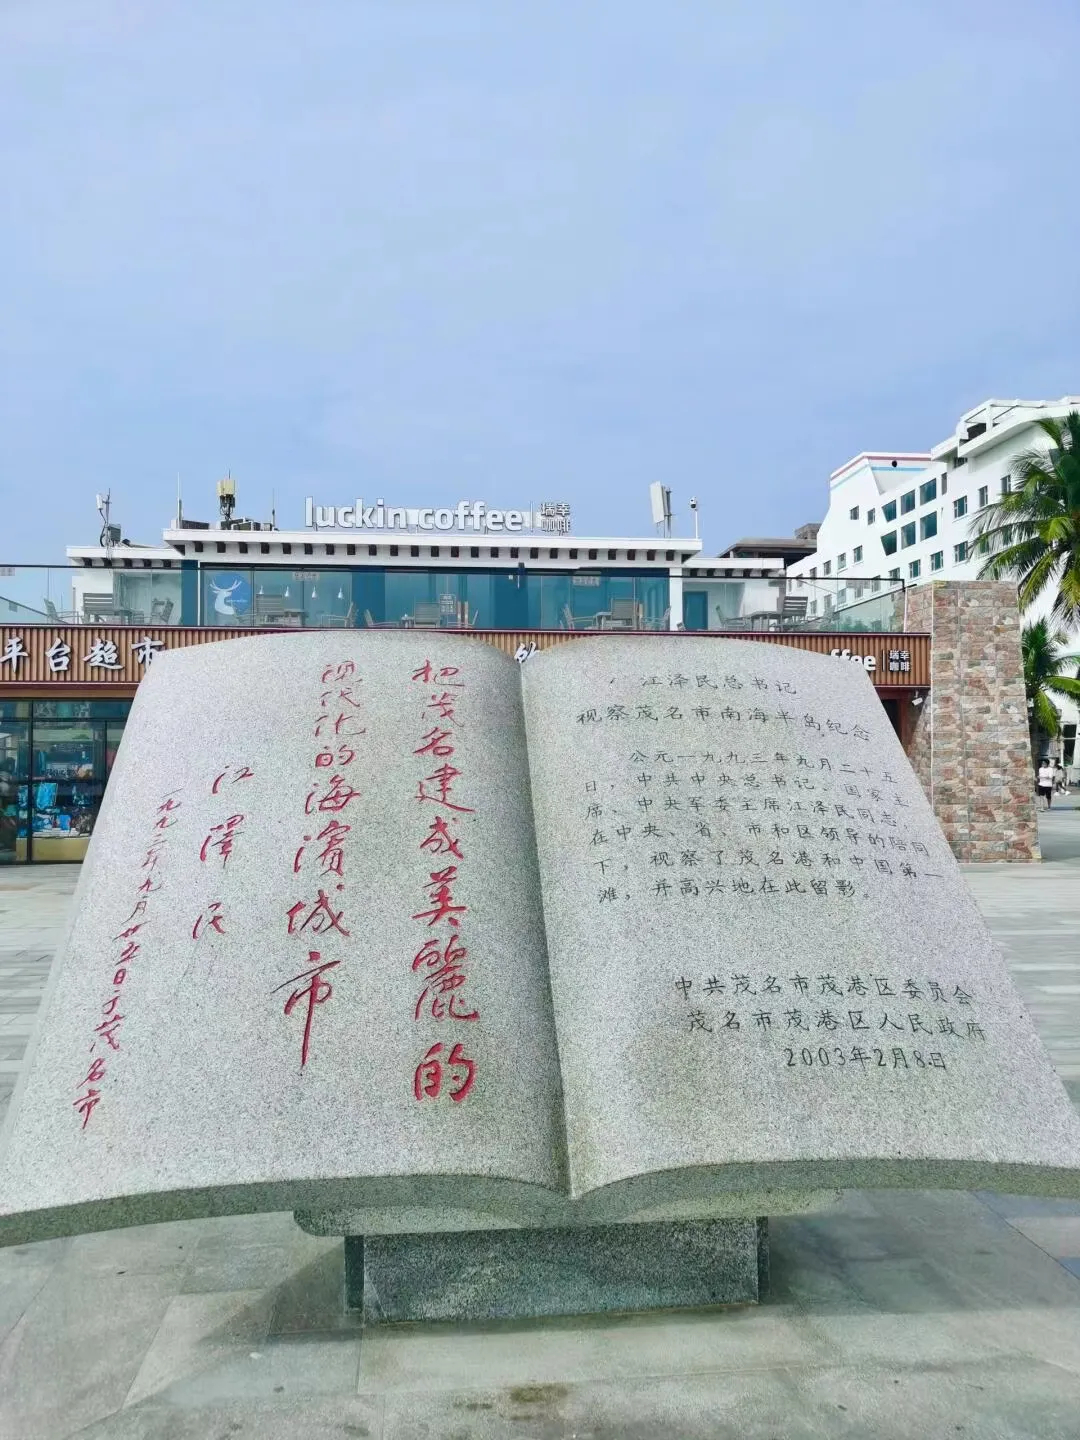 luckin coffee 瑞幸咖啡
平台超市
瑞幸咖啡
把茂名建成美麗的
现代化的海濱城市
江澤民
一九九三年九月廿五日于茂名市
江泽民总书记
视察茂名市南海半岛纪念
公元一九九三年九月二十五
日，中共中央总书记、国家主
席、中央军委主席江泽民同志，
在中央、省、市和区领导的陪同
下，视察了茂名港和中国第一
滩，并高兴地在此留影。
中共茂名市茂港区委员会
茂名市茂港区人民政府
2003年2月8日